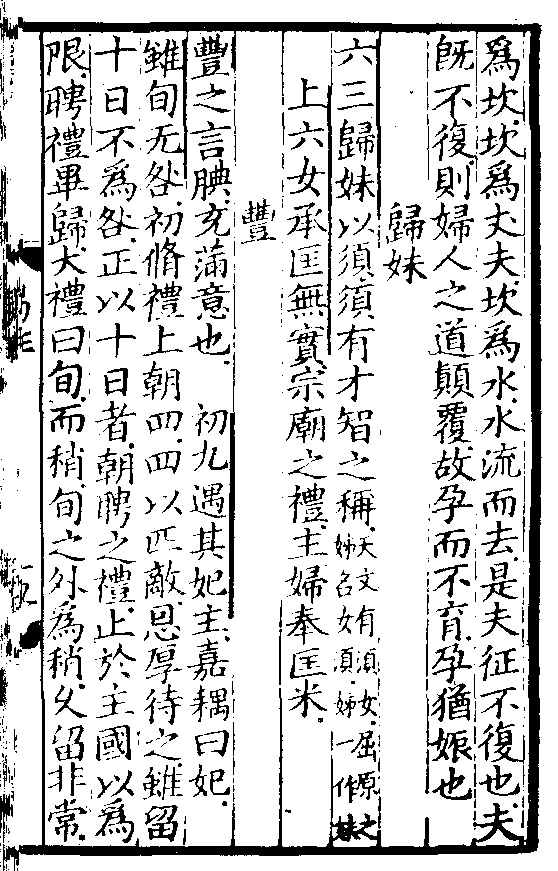 爲坎坎爲丈夫坎爲水水流而去是夫征不復也夫
旣不復則婦人之道顛覆故孕而不育孕猶娠也
歸妹
六三歸妹以須須有才智之稱天文有須女屈原之姊名女須姊一作妹
上六女承匡無實宗廟之禮主婦奉匡米
豐
豐之言腆充滿意也 初九遇其妃主嘉耦曰妃
雖旬无咎初脩禮上朝四四以匹敵恩厚待之雖留
十日不爲咎正以十日者朝聘之禮止於主國以爲
限聘禮畢歸大禮曰旬而稍旬之外爲稍久留非常